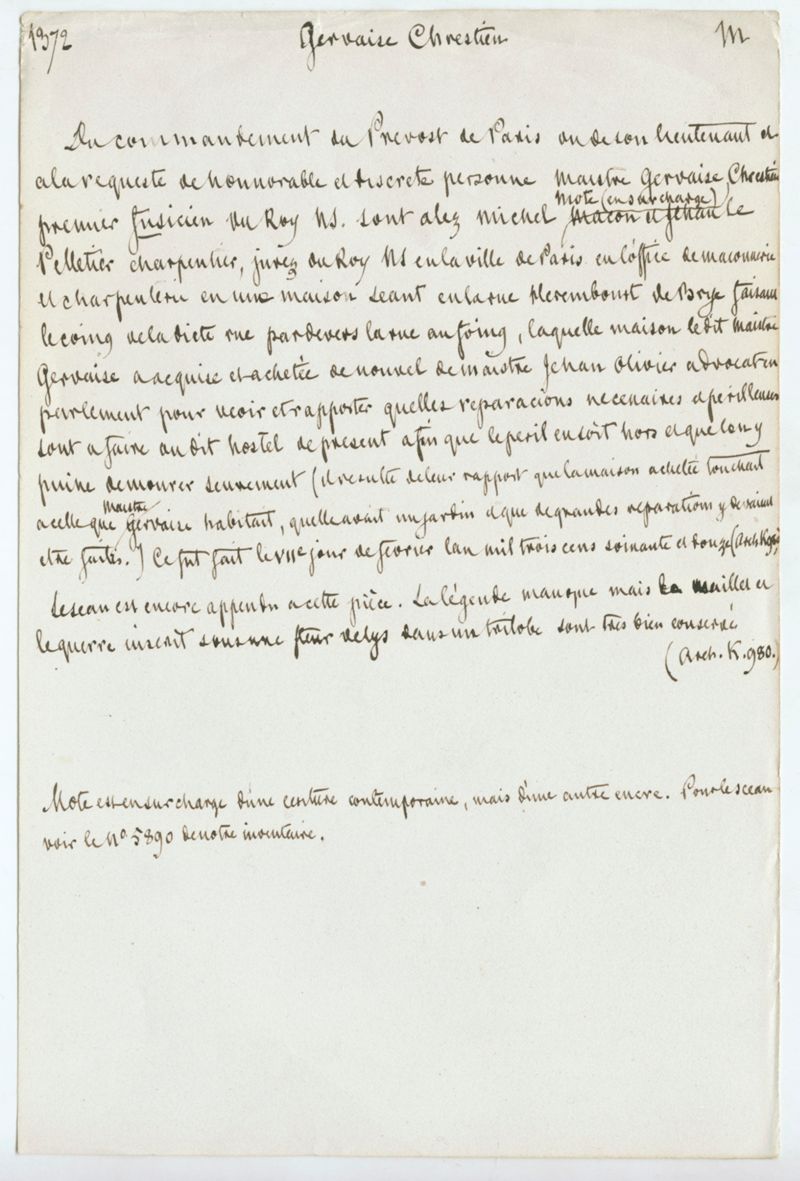 1372 Gervaise Chrestien M
Du commandement du Prevost de Paris ou de son lieutenant et
a la requeste de honnorable et discrete personne maistre Gervaise Chrestien
premier fusicien du Roy NS. sont alez Michel Mote (en surcharge) macon et Jehan le
Pelletier charpentier, jurez du Roy NS en la ville de Paris en l'office de maconnerie
et charpenterie en une maison seant en la rue Herembourt de Brye faisant
le coing de la dicte rue par devers la rue au foing, laquelle maison le dit maistre
Gervaise a acquise et achetée de nouvel de maistre Jehan Olivier advocat en
parlement pour veoir et rapporter quelles reparacions necenaires a perilleuses
sont a faire au dit hostel de present afin que le peril en soit hors et que lon y
puine demourer seurement (il resulte de leur rapport que la maison achetée touchait
a celle que maistre Gervaise habitait, quelle avait un jardin et que de grandes reparations y devaient
etre faites.) Ce fut fait le VIIe jour de fevrier lan mil trois cens soixante et douze (Arch.
Le seau est encore appendu a cette pièce. La légende manque mais le maillet et
le querre inscrit sous une fleur de lys dans un trilobe sont très bien conservé
(Arch. K. 980.)
Mote est en surcharge d'une ecriture contemporaine, mais d'une autre encre. Pour le sceau
voir le No 5890 de notre inventaire.